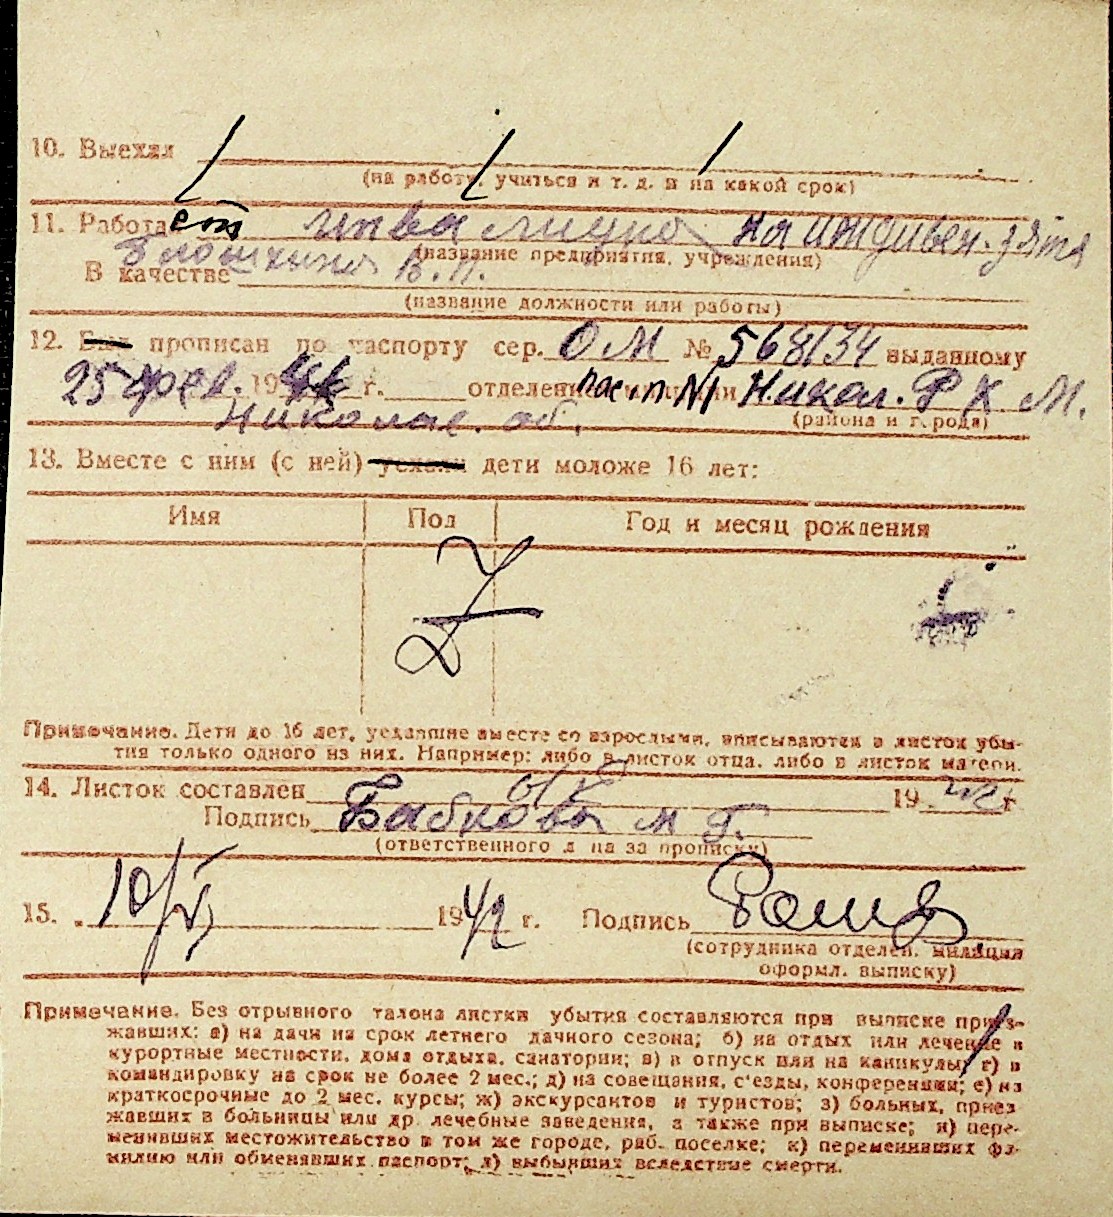 10. Выехал
(на работу, учиться и т. д. и на какой срок)
11. Работает на иждивен. зятя
(название предприятия, учреждения)
В. П.
В качестве
(название должности или работы)
12. Был прописан по паспорту сер. ОМ № 568134 выданному
25 фев. 194 г. отделением милиции пас. п. №1 Никол. Р К М.
(района и города)
Николае. об.
13. Вместе с ним (с ней) уехали дети моложе 16 лет:
Имя Пол Год и месяц рождения
Z
Примечание. Дети до 16 лет, уехавшие вместе со взрослыми, вписываются в листок убы-
тия только одного из них. Например: либо в листок отца, либо в листок матери.
14. Листок составлен 6/V 1942 г
Подпись Бабкова М Г.
(ответственного л на за прописку)
15. 10/VI 1942 г. Подпись
(сотрудника отделен. милиции
оформл. выписку)
Примечание. Без отрывного талона листки убытия составляются при выписке приез-
жавших: а) на дачи на срок летнего дачного сезона; б) на отдых или лечение в
курортные местности, дома отдыха, санатории; в) в отпуск или на каникулы; г) в
командировку на срок не более 2 мес.; д) на совещания, с'езды, конференции; е) на
краткосрочные до 2 мес. курсы; ж) экскурсантов и туристов; з) больных, приез
жавших в больницы или др. лечебные заведения, а также при выписке; и) пере-
менивших местожительство в том же городе, раб. поселке; к) переменивших фа-
милию или обменявших паспорт; л) выбывших вследствие смерти.